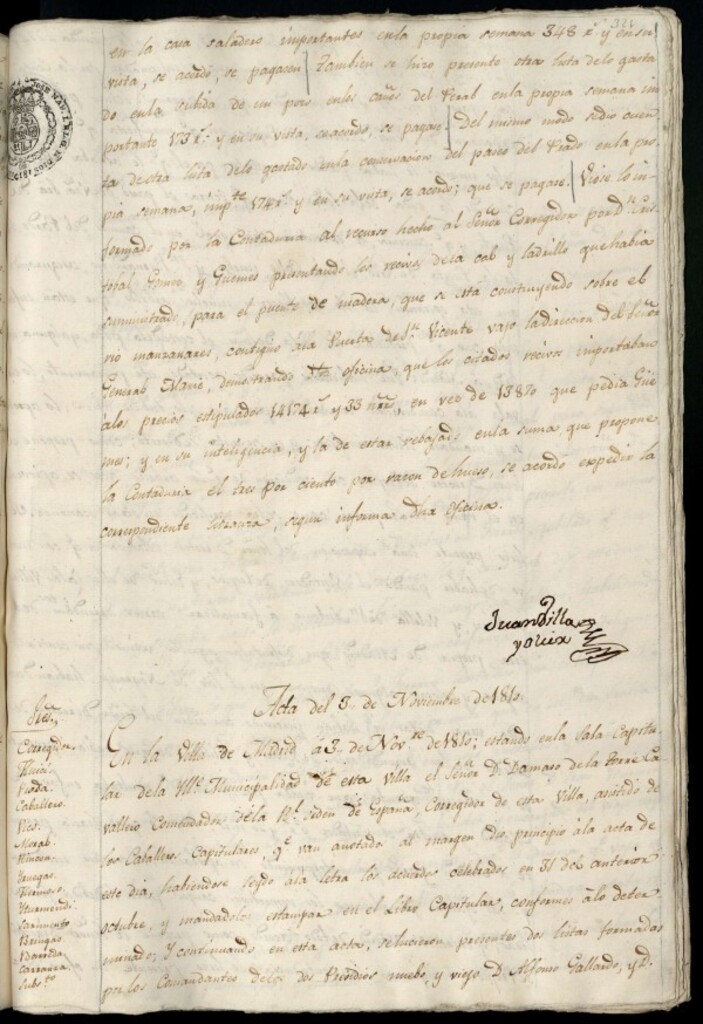 321
en la casa saladero importantes en la propia semana 348 r.s y en su
vista, se acordó, se pagasen | Tambien se hizo presente otra lista de lo gasta
do en la subida de un pozo en los caños del Peral en la propia semana im
portante 173 r.s y en su vista, se acordó, se pague. | Del mismo modo se dio cuen
ta de otra lista de lo gastado en la conservacion del paseo del Prado en la pro
pia semana, impte 174 r.s y en su vista, se acordó; que se pagase. | Viose lo in
formado por la Contaduria al recurso hecho al Señor Corregidor por Dn Cris
tobal Gomez y Guemes presentando los recivos de la cal y ladrillo que habia
suministrado, para el puente de madera, que se está construyendo sobre el
rio manzanares, contiguo á la Puerta de Sn Vicente vajo la direccion del Señor
General Marie, demostrando dha oficina, que los citados recivos importaban
á los precios estipulados 14174 r.s y 33 mrs, en vez de 13870 que pedia Güe
mes; y en su inteligencia, y la de estar rebajado en la suma que propone
la Contaduria el tres por ciento por razon de hueso, se acordó expedir la
correspondiente libranza, segun informa dha Oficina.
Juan Villa
y Olier
Acta del 3 de Noviembre de 1810.
Sres
Corregidor.
Rueda.
Caballero.
Rico.
Moral.
Rincon.
Venegas.
Hermoso.
Yturmendi.
Sarmiento
Bringas.
Barreda.
Carranza.
Substo
En la Villa de Madrid á 3 de Novre de 1810; estando en la Sala Capitu
lar de la Ylle Municipalidad de esta villa el Señor D. Damaso de la Torre Ca
vallero Comendador de la Rl Orden de España, Corregidor de esta Villa, asistido de
los Caballeros Capitulares, qe van anotados al margen Dio principio á la acta de
este dia, habiendose leydo á la letra los acuerdos celebrados en 31 del anterior
octubre, y mandadole estampar en el Libro Capitular, conformes á lo deter
minado; Y continuando en esta acta, se hicieron presentes dos listas formadas
por los Comandantes de los dos Presidios nuebo, y viejo D. Alfonso Gallardo, y D.